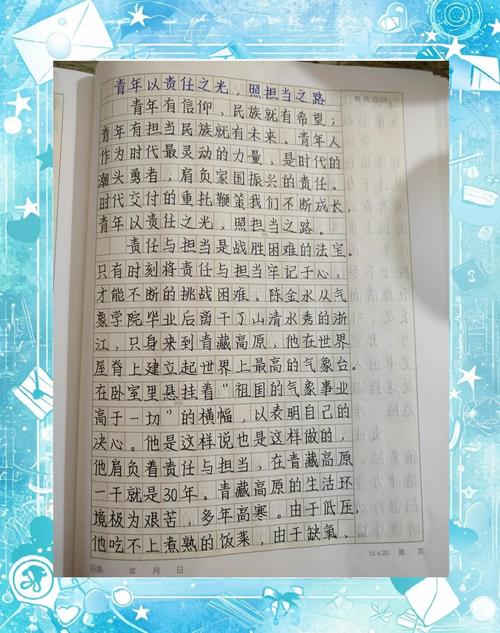 青年以责任之光，照担当之路
青年有信仰，民族就有希望；
青年有担当民族就有未来。青年人
作为时代最灵动的力量，是时代的
潮头勇者，肩负家国振兴的责任。
时代交付的重托鞭策我们不断成长，
青年以责任之光，照担当之路。
责任与担当是战胜困难的法宝。
只有时刻将责任与担当牢记于心，
才能不断的挑战困难。陈金水从气
象学院毕业后离干了山清水秀的浙
江，只身来到青藏高原，他在世界
屋脊上建立起世界上最高的气象台。
在卧室里悬挂着“祖国的气象事业
高于一切”的横幅，以表明自己的
决心。他是这样说也是这样做的，
他肩负着责任与担当，在青藏高原
一干就是30年。青藏高原的生活环
境极为艰苦，多年高寒。由于低压，
他吃不上煮熟的饭菜，由于缺氧，
15×20 第 页
日期： 年 月 日